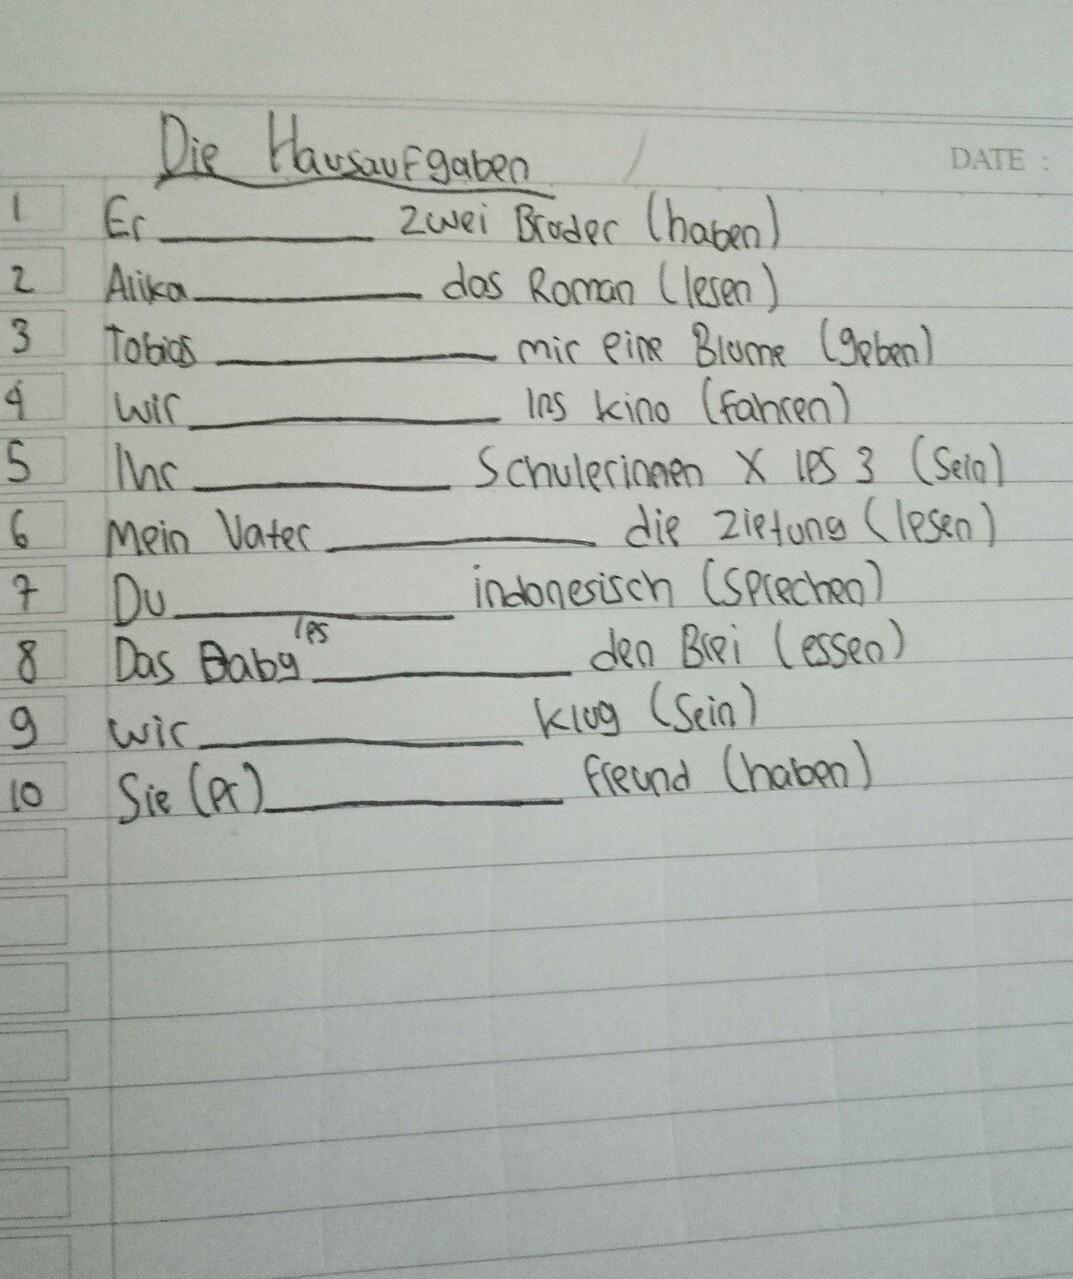 Die Hausaufgaben
DATE :
1 Er ________ zwei Bruder (haben)
2 Alika ________ das Roman (lesen)
3 Tobias ________ mir eine Blume (geben)
4 Wir ________ Ins kino (fahren)
5 Ihr ________ Schulerinnen X IPS 3 (Sein)
6 Mein Vater ________ die Zietung (lesen)
7 Du ________ indonesisch (Sprechen)
IPS
8 Das Baby ________ den Brei (essen)
9 Wir ________ Klug (Sein)
10 Sie (Pr) ________ Freund (haben)